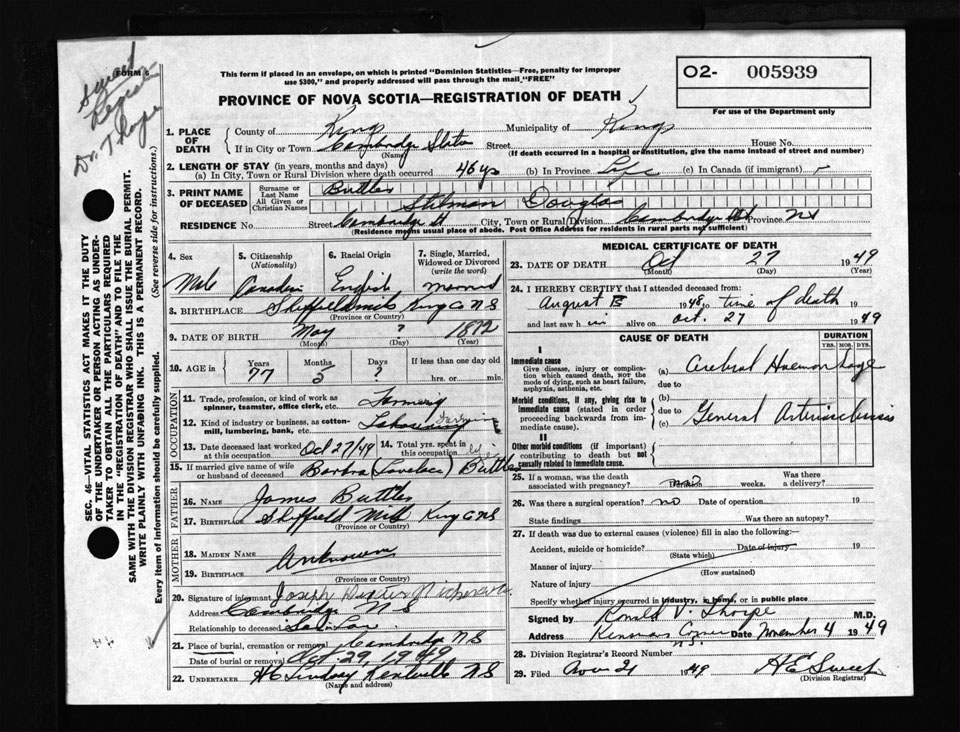 FORM 6
Dr. Thorpe
This form if placed in an envelope, on which is printed "Dominion Statistics—Free, penalty for improper
use $300," and properly addressed will pass through the mail "FREE"
O2- 005939
For use of the Department only
PROVINCE OF NOVA SCOTIA—REGISTRATION OF DEATH
1. PLACE OF DEATH
County of Kings Municipality of Kings
If in City or Town Cambridge Station Street House No.
(Name) (If death occurred in a hospital or institution, give the name instead of street and number)
2. LENGTH OF STAY (in years, months and days)
(a) In City, Town or Rural Division where death occurred 46 yrs (b) In Province Life (c) In Canada (if immigrant)
3. PRINT NAME OF DECEASED
Surname or Last Name Buttler
All Given or Christian Names Stilman Douglas
RESIDENCE No. Street Cambridge St City, Town or Rural Division Cambridge Province N S
(Residence means usual place of abode. Post Office Address for residents in rural parts not sufficient)
4. Sex
Male
5. Citizenship (Nationality)
Canadian
6. Racial Origin
English
7. Single, Married, Widowed or Divorced (write the word)
married
8. BIRTHPLACE Sheffield Mills King Co N S
(Province or Country)
9. DATE OF BIRTH May ? 1872
(Month) (Day) (Year)
10. AGE in Years Months Days If less than one day old
77 5 ? hrs. or min.
OCCUPATION
11. Trade, profession, or kind of work as spinner, teamster, office clerk, etc. Farming
12. Kind of industry or business, as cotton-mill, lumbering, bank, etc.
13. Date deceased last worked at this occupation Oct 27/49
14. Total yrs. spent in this occupation
15. If married give name of wife or husband of deceased Barbra (Lovelace) Buttler
FATHER
16. Name James Buttler
17. Birthplace Sheffield Mills King Co NS
(Province or Country)
MOTHER
18. MAIDEN NAME Unknown
19. BIRTHPLACE
(Province or Country)
20. Signature of informant Joseph Dexter
Address Cambridge N S
Relationship to deceased Son in Law
21. Place of burial, cremation or removal Cambridge NS
Date of burial or removal Oct 29, 1949
22. UNDERTAKER H E Lindsay Kentville N S
(Name and Address)
MEDICAL CERTIFICATE OF DEATH
23. DATE OF DEATH Oct 27 1949
(Month) (Day) (Year)
24. I HEREBY CERTIFY that I attended deceased from:
August 13 1948 to time of death 19
and last saw h im alive on oct. 27 1949
CAUSE OF DEATH
DURATION
YRS. MOS. DYS.
I
Immediate cause
Give disease, injury or complication which caused death, NOT the mode of dying, such as heart failure, asphyxia, asthenia, etc.
(a) Cerebral Haemorrhage
due to
Morbid conditions, if any, giving rise to immediate cause (stated in order proceeding backwards from immediate cause).
(b)
due to
(c) General Arteriosclerosis
II
Other morbid conditions (if important) contributing to death but not causally related to immediate cause.
25. If a woman, was the death associated with pregnancy? weeks. Was there a delivery?
26. Was there a surgical operation? no Date of operation 19
State findings Was there an autopsy?
27. If death was due to external causes (violence) fill in also the following:—
Accident, suicide or homicide? Date of injury 19
(State which)
Manner of injury
(How sustained)
Nature of injury
Specify whether injury occurred in industry, in home, or in public place
Signed by Ronald V. Thorpe M.D.
Address Kinsmans Corner N.S. Date November 4 1949
28. Division Registrar's Record Number
29. Filed Nov 21 1949 H E Sweet
(Division Registrar)
SEC. 46—VITAL STATISTICS ACT MAKES IT THE DUTY
OF THE UNDERTAKER OR PERSON ACTING AS UNDER-
TAKER TO OBTAIN ALL THE PARTICULARS REQUIRED
IN THE "REGISTRATION OF DEATH" AND TO FILE THE
SAME WITH THE DIVISION REGISTRAR WHO SHALL ISSUE THE BURIAL PERMIT.
WRITE PLAINLY WITH UNFADING INK. THIS IS A PERMANENT RECORD.
Every item of information should be carefully supplied. (See reverse side for instructions.)